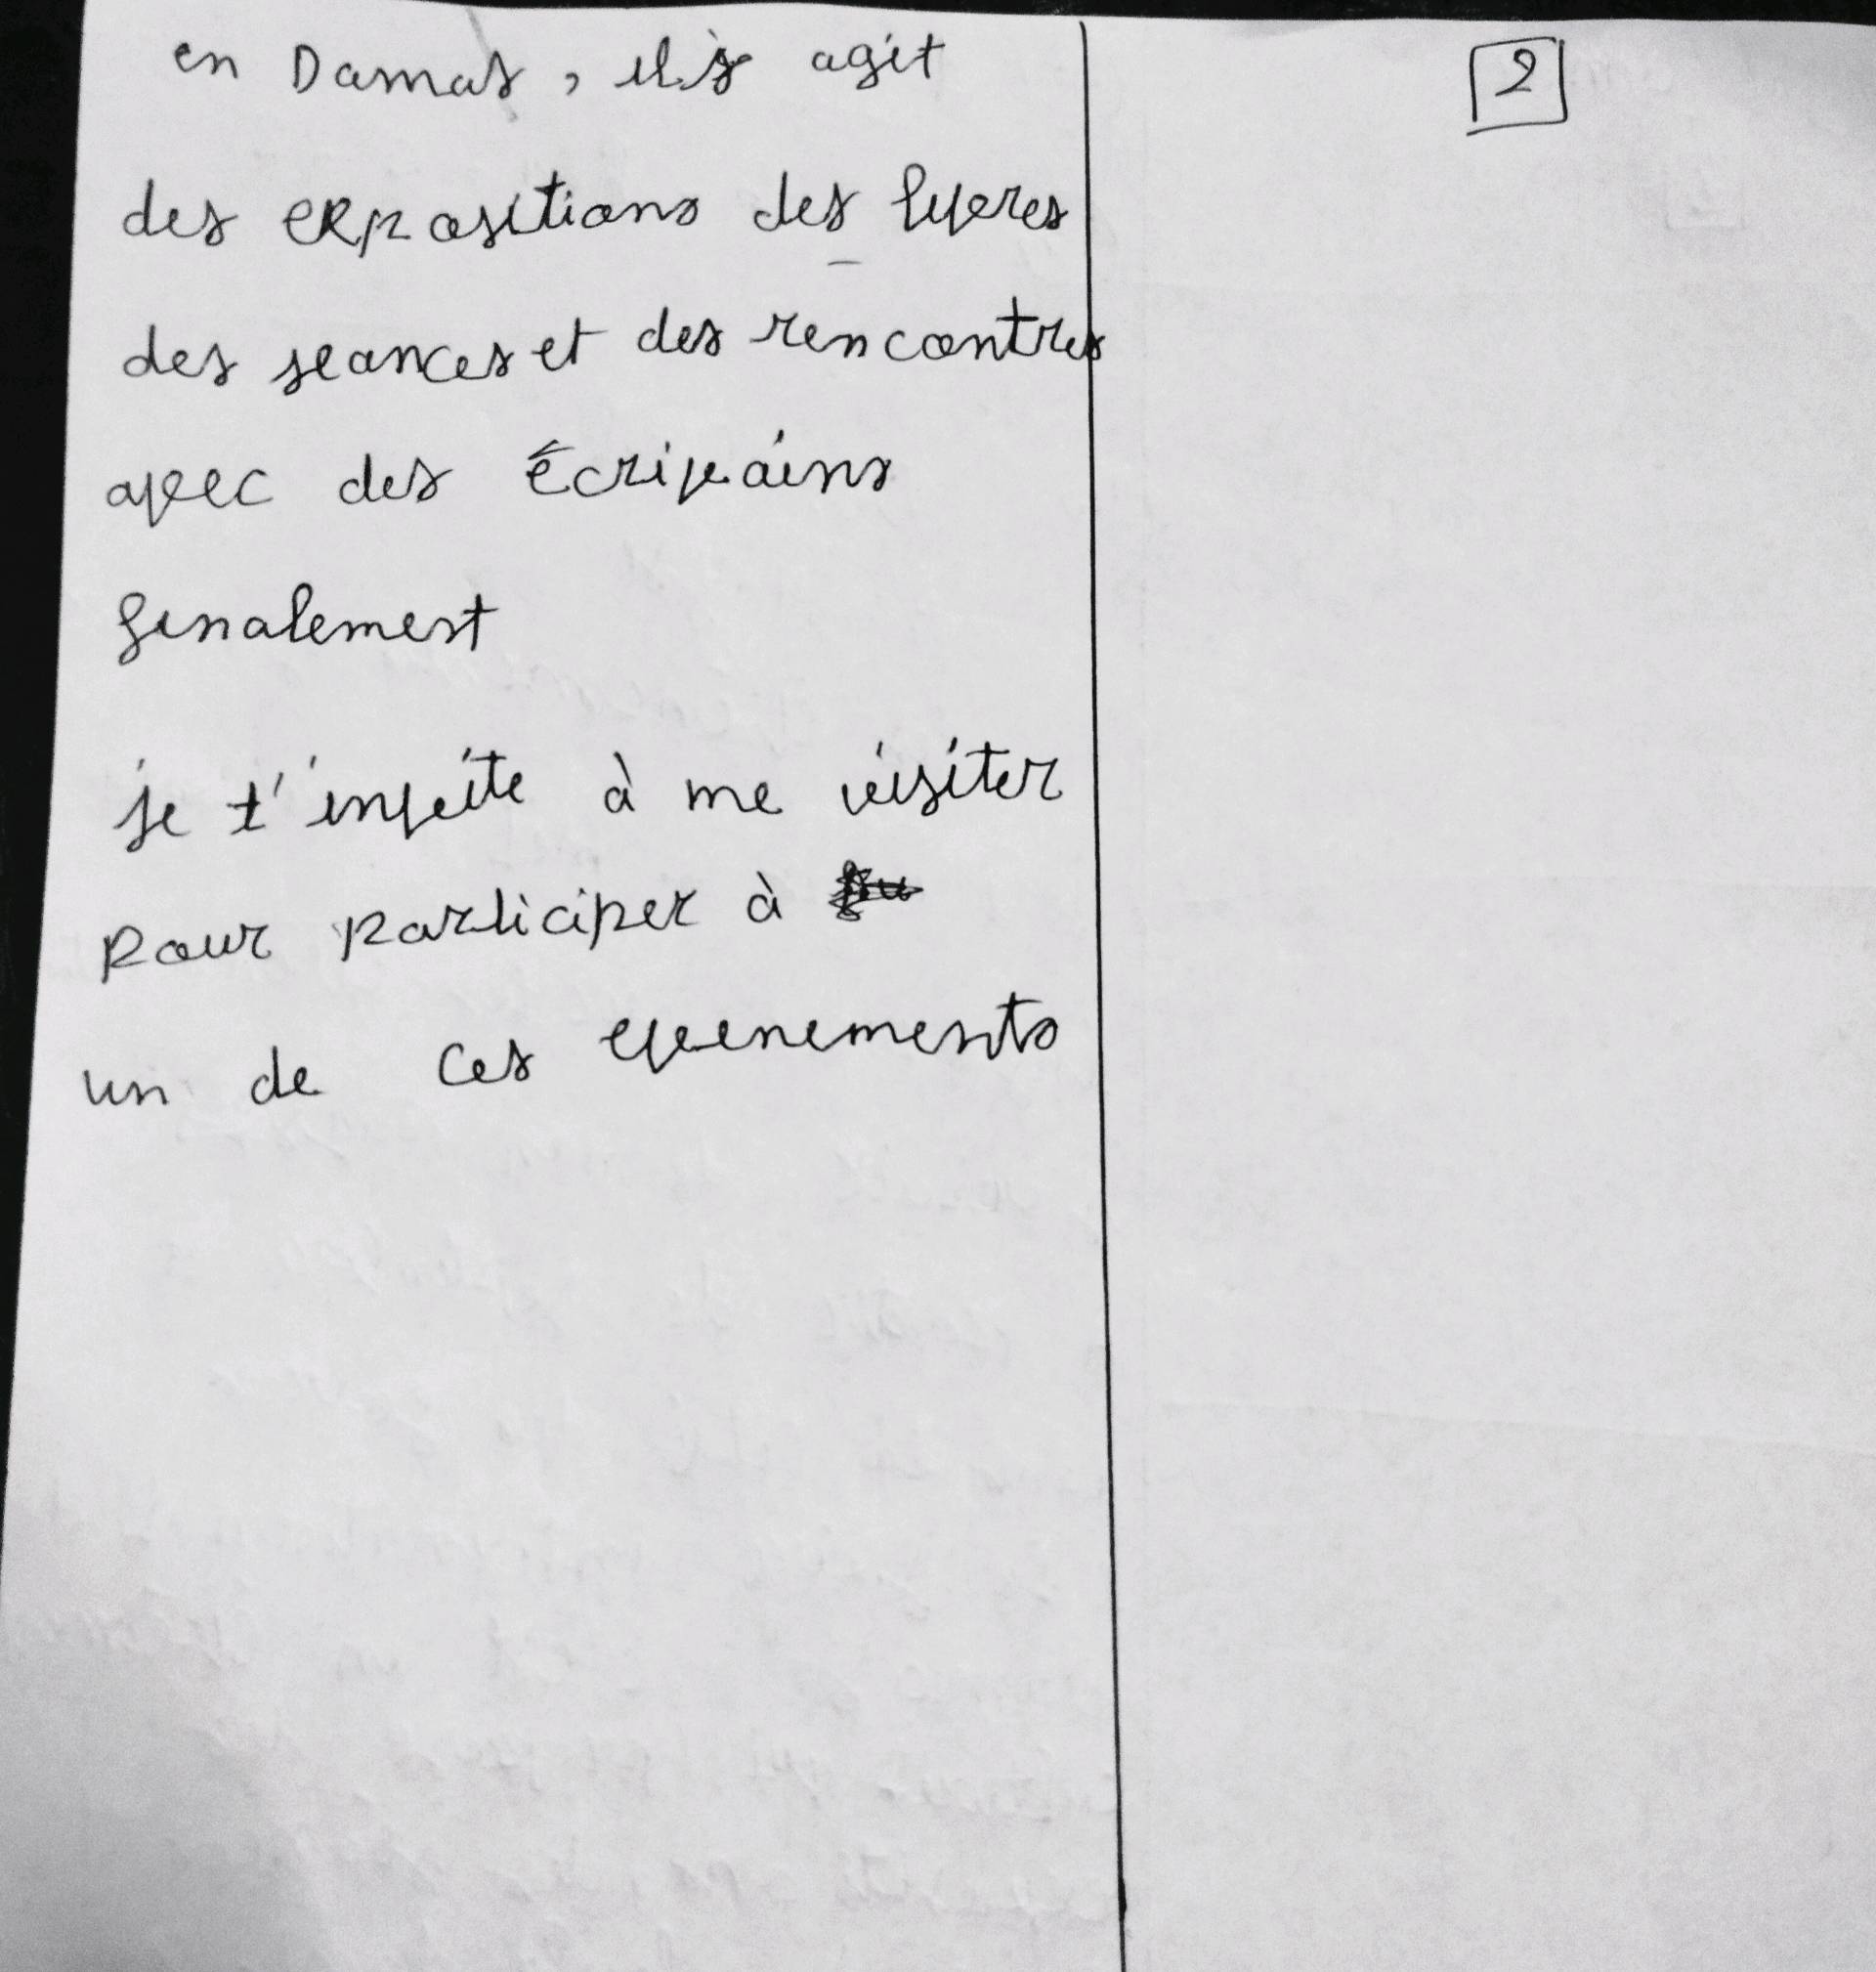 en Damas, il s agit
2
des expositions des livres
des seances et des rencontres
avec des écrivains
finalement
je t'invite à me visiter
pour participer à
un de ces evenements